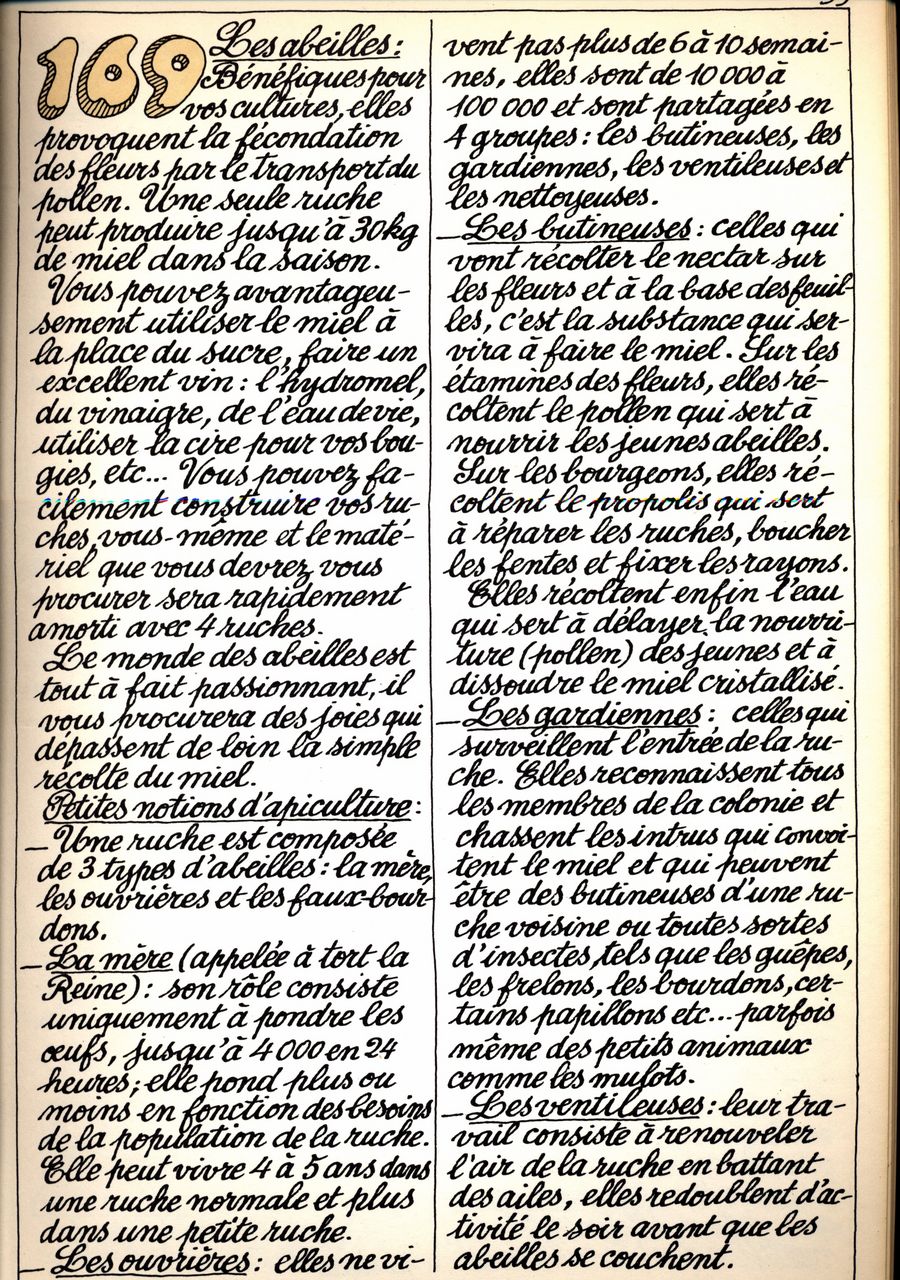 169 Les abeilles :
Bénéfiques pour
vos cultures, elles
provoquent la fécondation
des fleurs par le transport du
pollen. Une seule ruche
peut produire jusqu'à 30 kg
de miel dans la saison.
Vous pouvez avantageu-
sement utiliser le miel à
la place du sucre, faire un
excellent vin : l'hydromel,
du vinaigre, de l'eau de vie,
utiliser la cire pour vos bou-
gies, etc... Vous pouvez fa-
cilement construire vos ru-
ches, vous-même et le maté-
riel que vous devrez vous
procurer sera rapidement
amorti avec 4 ruches.
Le monde des abeilles est
tout à fait passionnant, il
vous procurera des joies qui
dépassent de loin la simple
récolte du miel.
Petites notions d'apiculture :
_ Une ruche est composée
de 3 types d'abeilles : la mère,
les ouvrières et les faux-bour-
dons.
_ La mère (appelée à tort la
Reine) : son rôle consiste
uniquement à pondre les
œufs, jusqu'à 4 000 en 24
heures ; elle pond plus ou
moins en fonction des besoins
de la population de la ruche.
Elle peut vivre 4 à 5 ans dans
une ruche normale et plus
dans une petite ruche.
_ Les ouvrières : elles ne vi-
vent pas plus de 6 à 10 semai-
nes, elles sont de 10 000 à
100 000 et sont partagées en
4 groupes : les butineuses, les
gardiennes, les ventileuses et
les nettoyeuses.
_ Les butineuses : celles qui
vont récolter le nectar sur
les fleurs et à la base des feuil-
les, c'est la substance qui ser-
vira à faire le miel. Sur les
étamines des fleurs, elles ré-
coltent le pollen qui sert à
nourrir les jeunes abeilles.
Sur les bourgeons, elles ré-
coltent le propolis qui sert
à réparer les ruches, boucher
les fentes et fixer les rayons.
Elles récoltent enfin l'eau
qui sert à délayer la nourri-
ture (pollen) des jeunes et à
dissoudre le miel cristallisé.
_ Les gardiennes : celles qui
surveillent l'entrée de la ru-
che. Elles reconnaissent tous
les membres de la colonie et
chassent les intrus qui convoi-
tent le miel et qui peuvent
être des butineuses d'une ru-
che voisine ou toutes sortes
d'insectes tels que les guêpes,
les frelons, les bourdons, cer-
tains papillons etc... parfois
même des petits animaux
comme les mulots.
_ Les ventileuses : leur tra-
vail consiste à renouveler
l'air de la ruche en battant
des ailes, elles redoublent d'ac-
tivité le soir avant que les
abeilles se couchent.